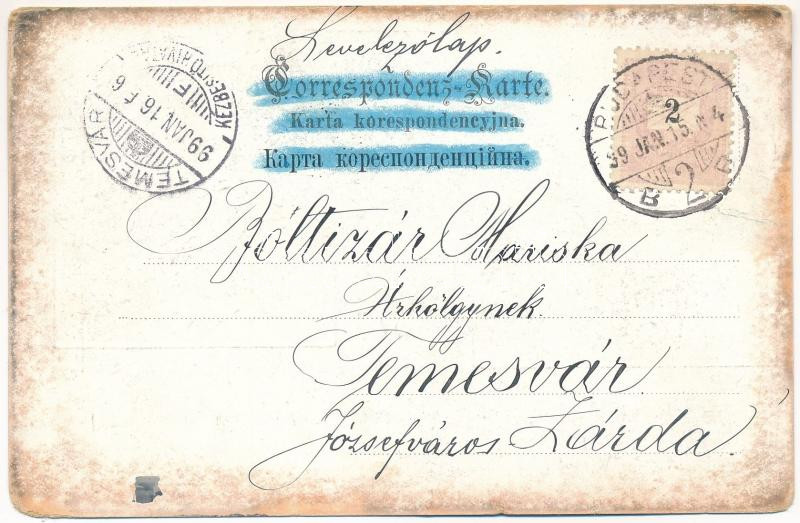 Levelezőlap.
Correspondenz-Karte.
Karta korespondencyjna.
Карта кореспонденційна.
TEMESVÁR
99 JAN 16 É 6
KÉZBESÍTŐ HIVATAL
BUDAPEST
2
99 JAN. 15. N 4
2
B
Boltizár Mariska
Úrhölgynek
Temesvár
Józsefváros Zárda